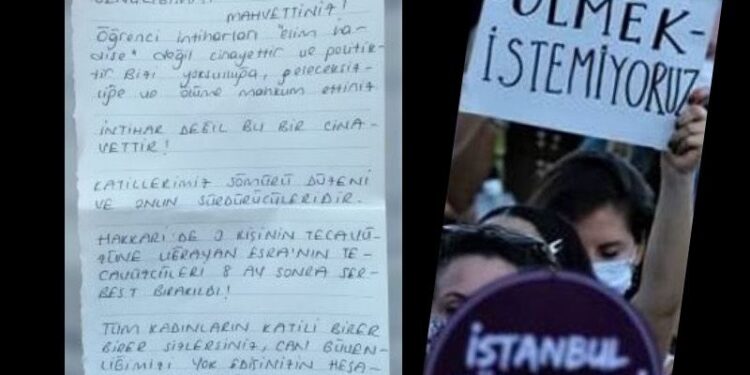 MAHVETTİNİZ!
Öğrenci intiharları "elim ha-
dise" değil cinayettir ve politik-
tir. Bizi yoksulluğa, geleceksiz-
liğe ve ölüme mahkum ettiniz
İNTİHAR DEĞİL BU BİR CİNA-
YETTİR!
KATİLLERİMİZ SÖMÜRÜ DÜZENİ
VE ONUN SÜRDÜRÜCÜLERİDİR.
HAKKARİ'DE KİŞİNİN TECAVÜ-
ZÜNE UĞRAYAN ESRA'NIN TE-
CAVÜZCÜLERİ 8 AY SONRA SER-
BEST BIRAKILDI!
TÜM KADINLARIN KATİLİ BİRER
BİRER SİZLERSİNİZ, CAN GÜVEN-
LİĞİMİZİ YOK EDİŞİNİZİN HESA-
ÖLMEK-
İSTEMİYORUZ
İSTANBUL